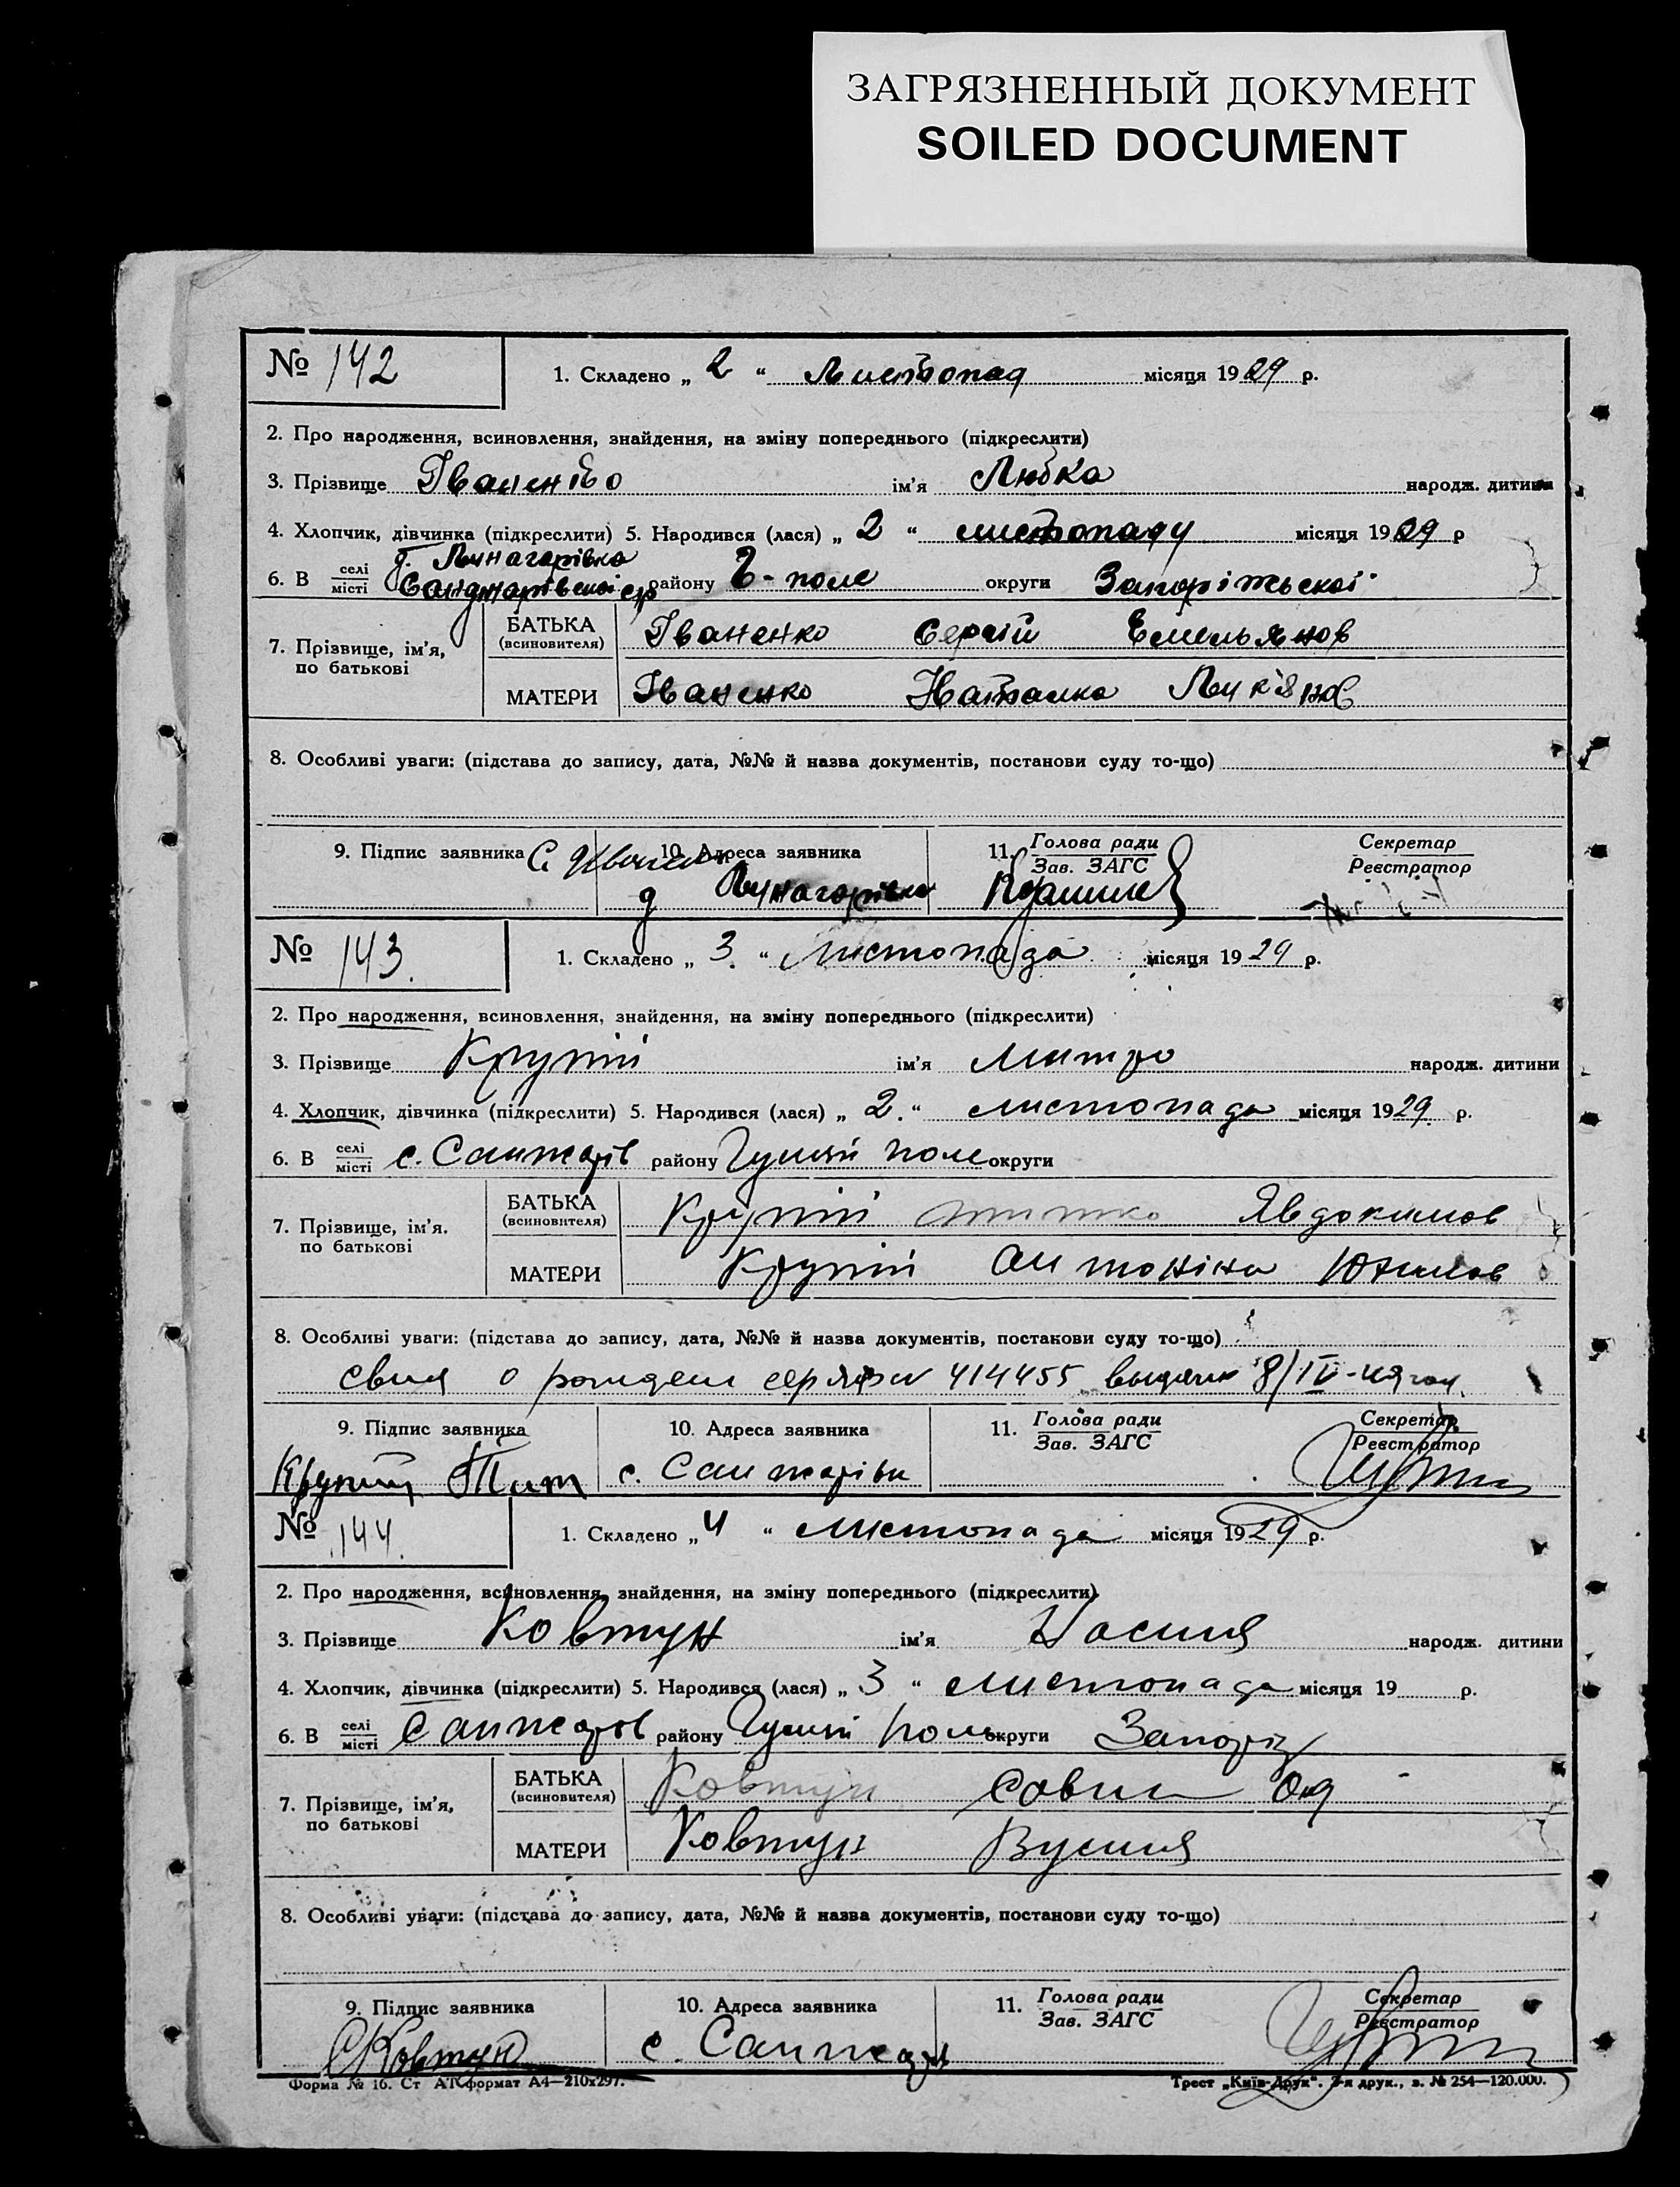 ЗАГРЯЗНЕННЫЙ ДОКУМЕНТ
SOILED DOCUMENT
№ 142
1. Складено „ 2 “ Листопад місяця 1929 р.
2. Про народження, всиновлення, знайдення, на зміну попереднього (підкреслити)
3. Прізвище Іваненко ім'я Любка народж. дитини
4. Хлопчик, дівчинка (підкреслити) 5. Народився (лася) „ 2 “ листопаду місяця 1929 р
Луначарівка
6. В селі місті Санджарівській с/р району Г-поле округи Запоріжської
7. Прізвище, ім'я, по батькові
БАТЬКА (всиновителя) Іваненко Сергій Емельянов
МАТЕРИ Іваненко Наталка
8. Особливі уваги: (підстава до запису, дата, №№ й назва документів, постанови суду то-що)
9. Підпис заявника 10. Адреса заявника 11. Голова ради Зав. ЗАГС Секретар Реєстратор
Луначарівка
№ 143.
1. Складено „ 3. “ Листопада місяця 1929 р.
2. Про народження, всиновлення, знайдення, на зміну попереднього (підкреслити)
3. Прізвище Крупій ім'я Митро народж. дитини
4. Хлопчик, дівчинка (підкреслити) 5. Народився (лася) „ 2. “ листопада місяця 1929 р.
6. В селі місті с. Санжарів району Гуляй Поле округи
7. Прізвище, ім'я. по батькові
БАТЬКА (всиновителя) Крупій Явдокимов
МАТЕРИ Крупій Антоніна Юхимов
8. Особливі уваги: (підстава до запису, дата, №№ й назва документів, постанови суду то-що)
о рожден 414455 8/IV
9. Підпис заявника 10. Адреса заявника 11. Голова ради Зав. ЗАГС Секретар Реєстратор
Крупій Тит с. Санжарівка
№ 144.
1. Складено „ 4 “ листопада місяця 1929 р.
2. Про народження, всиновлення, знайдення, на зміну попереднього (підкреслити)
3. Прізвище Ковтун ім'я Насиля народж. дитини
4. Хлопчик, дівчинка (підкреслити) 5. Народився (лася) „ 3 “ листопада місяця 19 р.
6. В селі місті Санжарів району Гуляй Поль округи Запоріз
7. Прізвище, ім'я, по батькові
БАТЬКА (всиновителя) Ковтун
МАТЕРИ Ковтун
8. Особливі уваги: (підстава до запису, дата, №№ й назва документів, постанови суду то-що)
9. Підпис заявника 10. Адреса заявника 11. Голова ради Зав. ЗАГС Секретар Реєстратор
С Ковтун с. Санжарів
Форма № 16. Ст АТК формат А4—210х297. Трест „Київ-Друк“. друк., з. № 254—120.000.